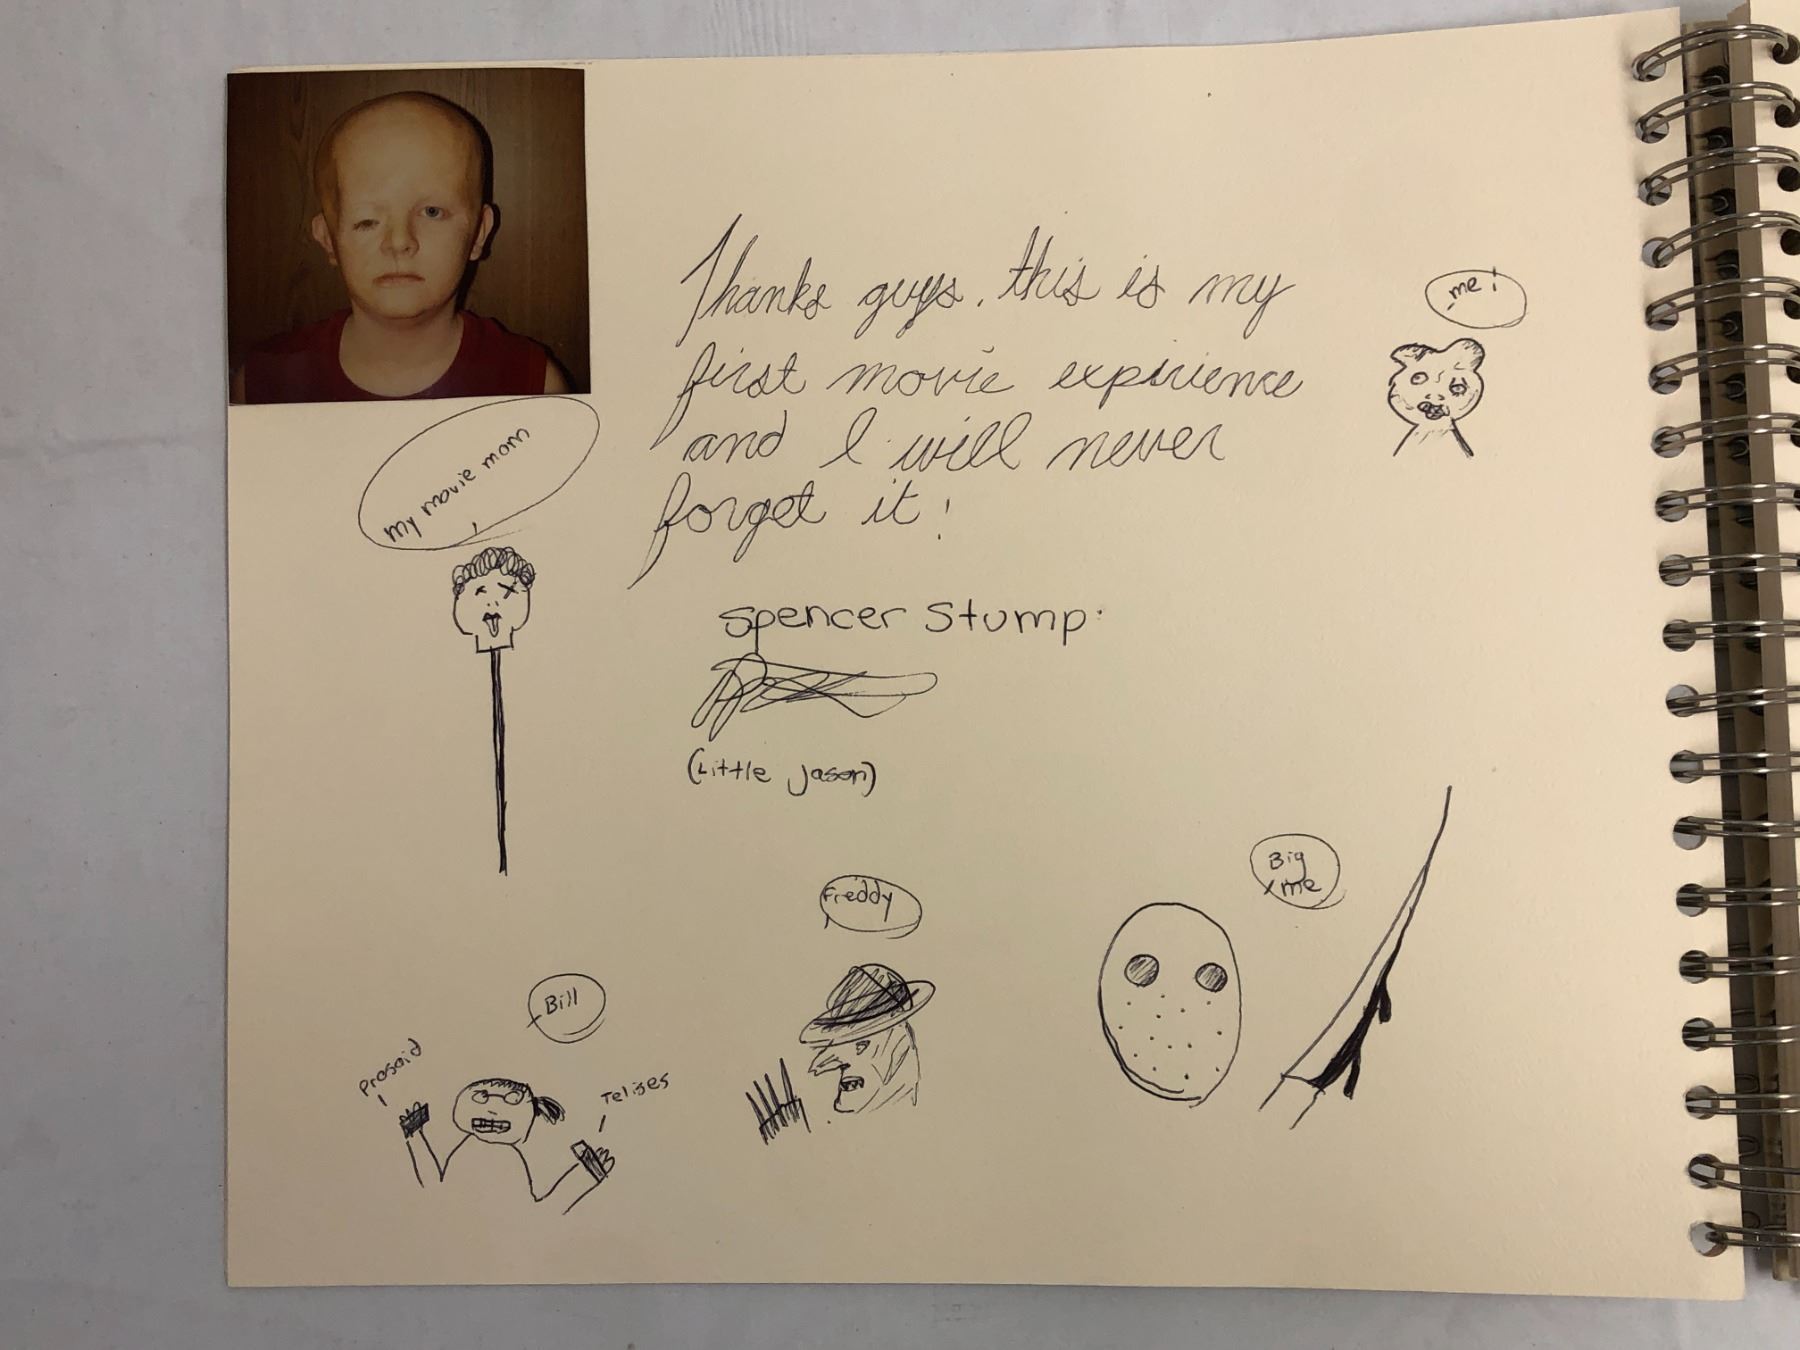 Thanks guys, this is my
first movie expirience
and I will never
forget it!
me!
my movie mom
Spencer Stump.
(Little Jason)
Freddy
Big
me
Bill
Prosaid
Telises